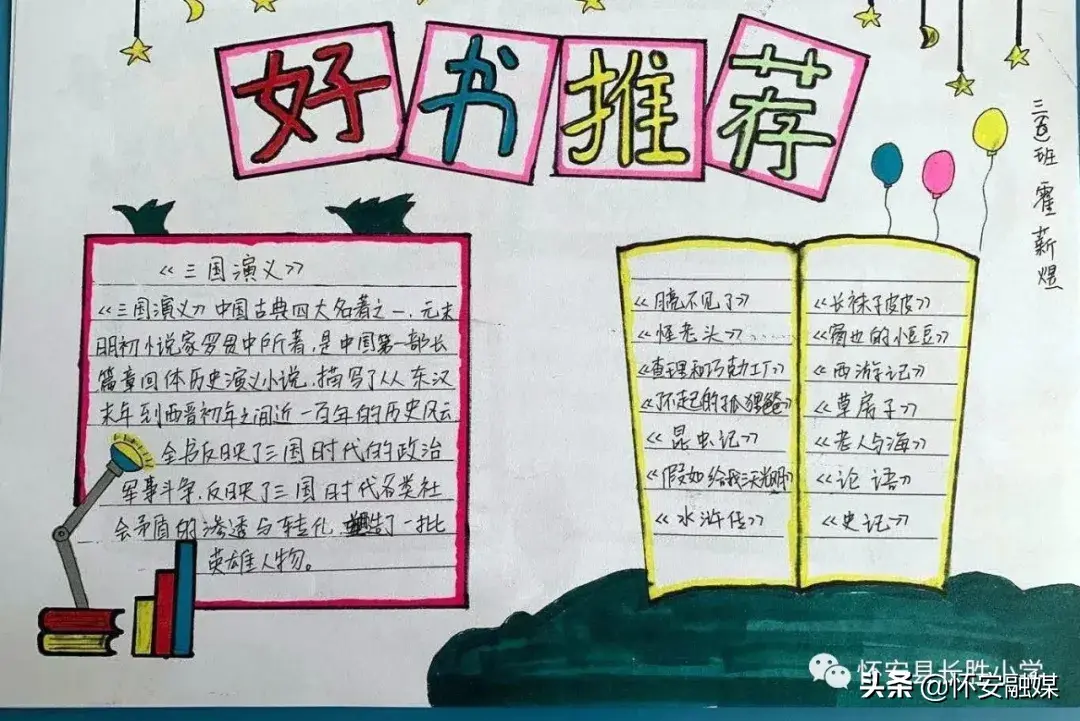 好书推荐
三(5)班 霍薪煜
《三国演义》
《三国演义》中国古典四大名著之一，元末
明初小说家罗贯中所著，是中国第一部长
篇章回体历史演义小说，描写了从东汉
末年到西晋初年之间近一百年的历史风云
全书反映了三国时代的政治
军事斗争，反映了三国时代各类社
会矛盾的渗透与转化，塑造了一批
英雄人物。
《月亮不见了》
《怪老头》
《查理和巧克力工厂》
《了不起的狐狸爸爸》
《昆虫记》
《假如给我三天光明》
《水浒传》
《长袜子皮皮》
《窗边的小豆豆》
《西游记》
《草房子》
《老人与海》
《论语》
《史记》
怀安县长胜小学
头条@怀安融媒